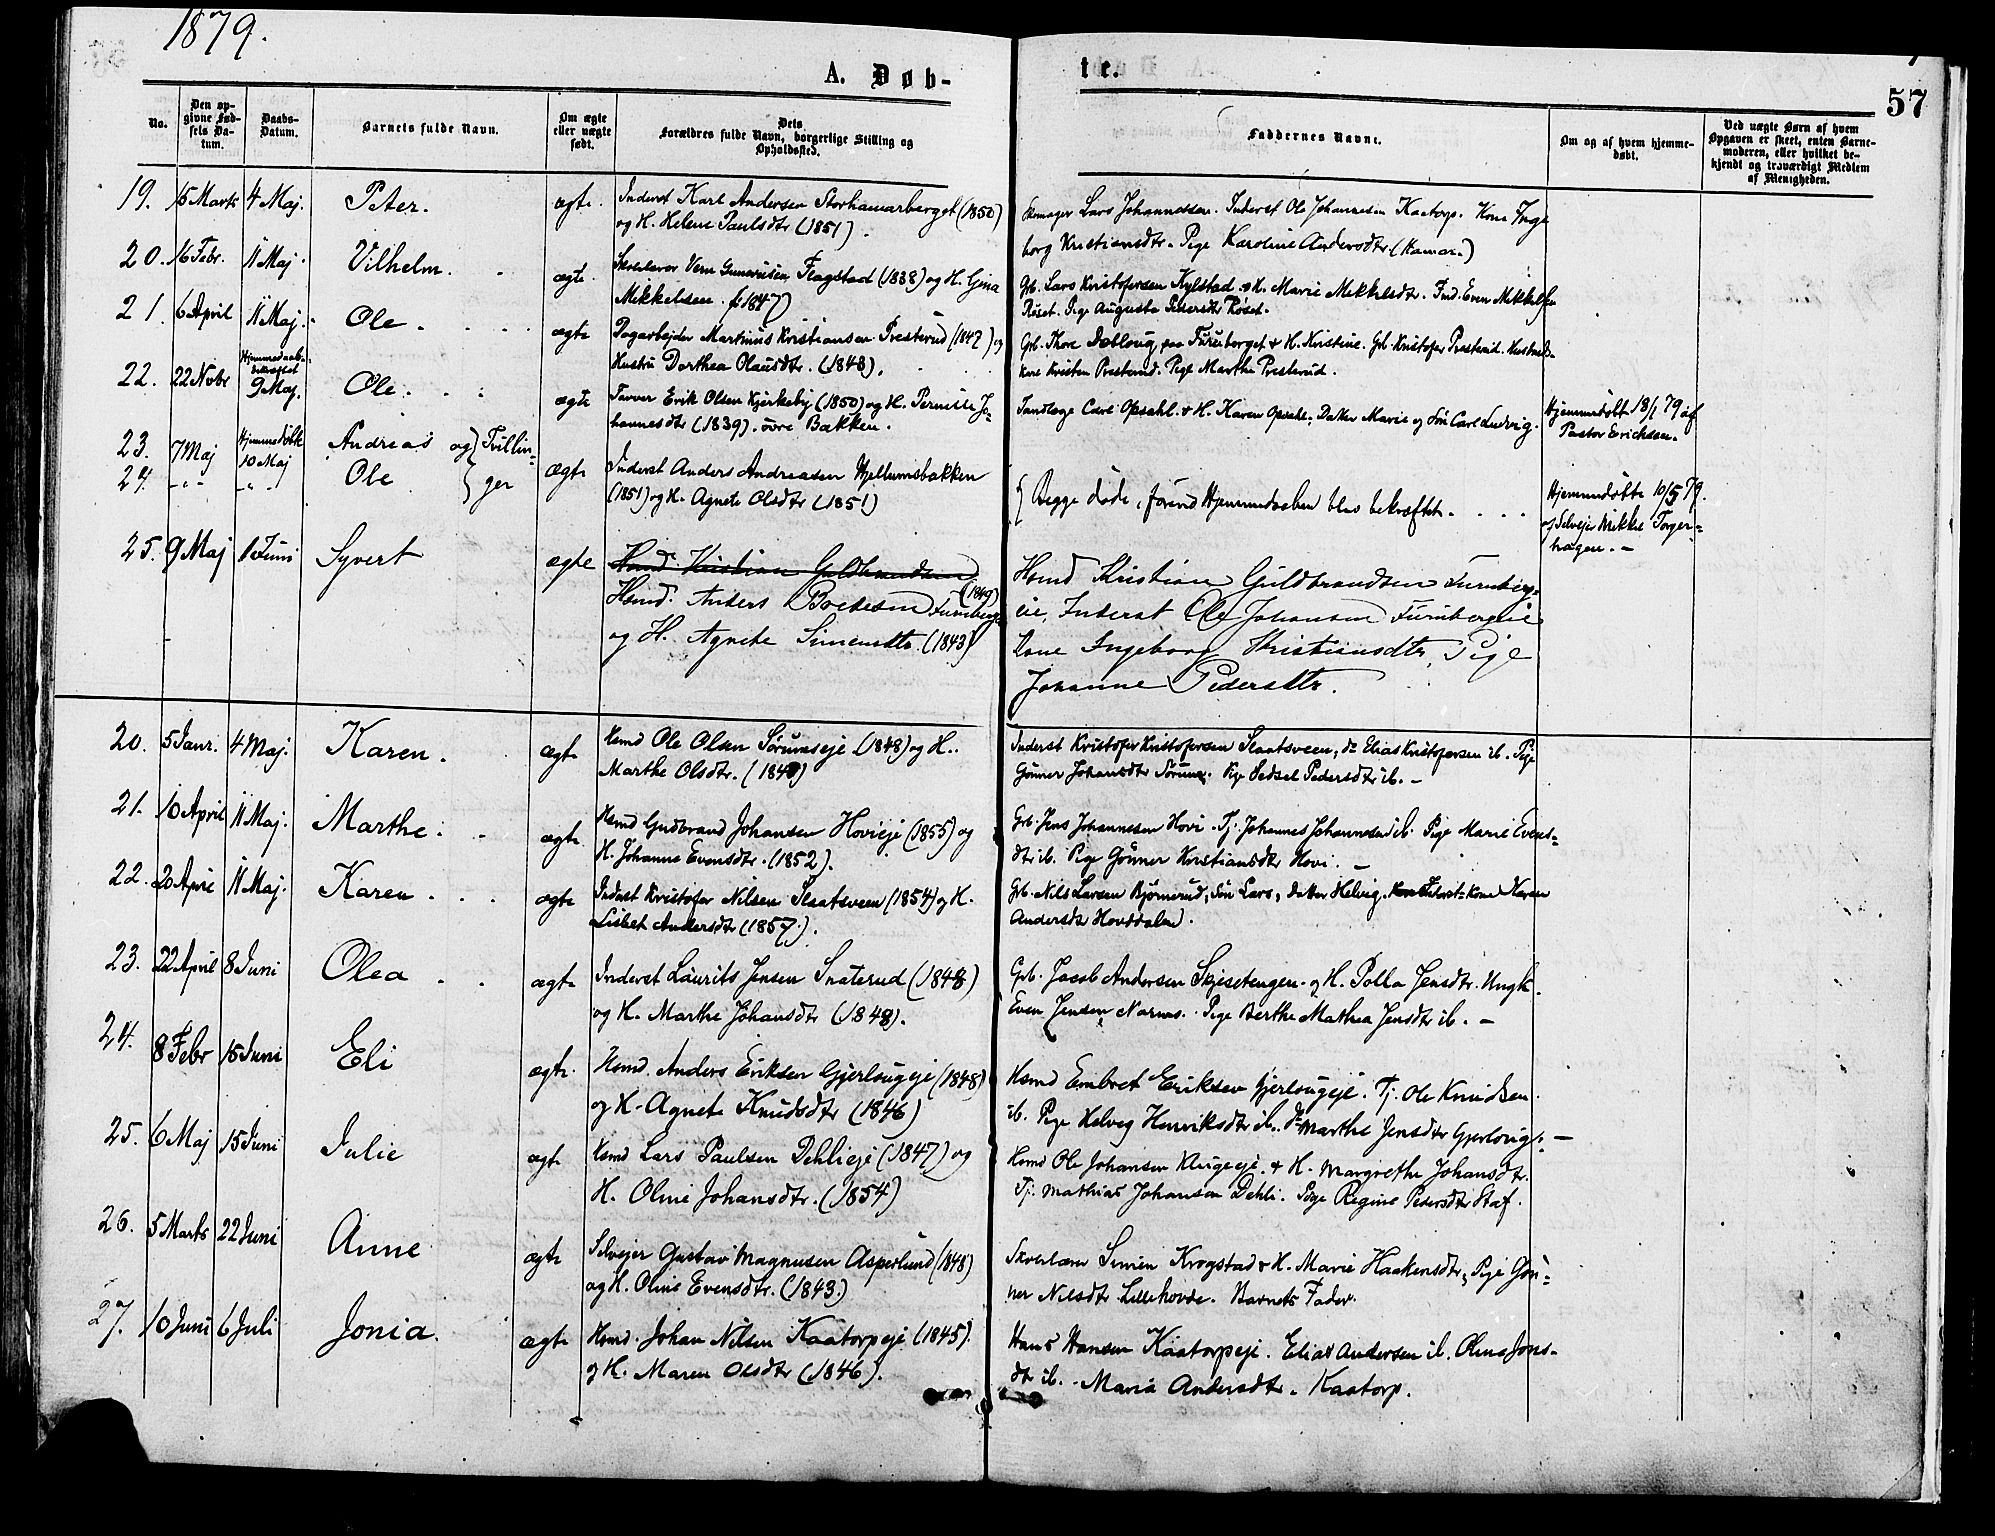 1879.
57
A. Døb-
te.
No.
Den op-
givne Fød-
sels Da-
tum.
Daabs-
Datum.
Barnets fulde Navn.
Om ægte
eller uægte
født.
Dets
Forældres fulde Navn, borgerlige Stilling og
Opholdssted.
Faddernes Navne.
Om og af hvem hjemme-
døbt.
Ved uægte Børn af hvem
Opgaven er skeet, enten Barne-
moderen, eller hvilket be-
kjendt og troværdigt Medlem
af Menigheden.
19. 15 Marts 4 Maj. Peter. ægte. Inderst Karl Andersen Storhamarberget (1850)
og H. Helene Paulsdtr (1851).
Lars Johannessen. Inderst Ole Johannesen Kaatorp. Kone Inge
borg Kristiansdtr. Pige Karoline Andersdtr (Hamar.)
20. 16 Febr. 11 Maj. Vilhelm. ægte. Skolelærer Flagstad (1838) og H. Gina
Mikkelsen. f. 1847)
Gb. Lars Kristofersen Kylstad & H. Marie Mikkelsdtr. Ind. Even Mikkelsen
Røset. Pige Augusta Pedersdtr Røset.
21. 6 April 11 Maj. Ole. ægte Dagarbejder Martinus Kristiansen Presterud (1847) og
Hustru Dorthea Olausdtr. (1848).
Gb. Thore Dæhloug, paa Furuberget & H. Kristine. Gb Kristofer Presterud.
Kristen Presterud. Pige Marthe Presterud.
22. 22 Novbr Hjemmedaab.
bekræftet
9 Maj. Ole. ægte Farver Erik Olsen Kjørkeby (1850) og H. Pernille Jo-
hannesdtr (1839). øvre Bakken.
Tandlæge Carl Opsahl. & H. Karen Opsahl, Datter Marie og Søn Carl Ludvig.
Hjemmedøbt 18/1 79 af
Pastor Erichsen.
23. 7 Maj Hjemmedøbt
10 Maj Andreas og } Tvillin-
24. -"- -"- Ole } ger ægte Inderst Anders Andreasen Hjellumsbakken
(1851) og H. Agnete Olsdtr (1851)
{ Begge døde, førend Hjemmedaaben blev bekræftet. . . .
Hjemmedøbte 10/5 79.
af Selvejer Mikkel Torger-
hagen. -
25. 9 Maj 1 Juni Syvert ægte Hsmd. Kristian Guldbrandsen
Hsmd. Anders Boetesen (1849)
og H. Agnete Simensdtr. (1843)
Hsmd Kristian Guldbrandsen Furuberg-
eie, Inderst Ole Johansen Furubergeie
Kone Ingeborg Kristiansdtr, Pige
Johanne Pedersdtr.
20. 5 Janr. 4 Maj. Karen. ægte Hsmd Ole Olsen Sørumseje (1848) og H.
Marthe Olsdtr.
Inderst Kristofer Kristofersen Slaatsveen, do Elias Kristofersen ib. Pige
Gønner Johansdtr Sørum. Pige Sidsel Pedersdtr ib. -
21. 10 April 11 Maj. Marthe. ægte Hsmd Gudbrand Johansen Hovieje (1855) og
H. Johanne Evensdtr. (1852).
Gb. Jens Johannesen Hovi. Tj. Johannes Johannesen ib. Pige Marie Evens-
dtr ib. Pige Gønner Kristiansdtr Hovi. -
22. 20 April 11 Maj. Karen. ægte Inderst Kristofer Nilsen Slaatsveen (1854) og H.
Lisbet Andersdtr (1857).
Gb. Nils Larsen Bjørnerud, Søn Lars, Datter Helvig. Inderst-Kone Karen
Andersdtr Hovddalen.
23. 22 April 8 Juni Olea ægte Inderst Laurits Jensen Snaterud (1848)
og H. Marthe Johansdtr (1848).
Gb. Jacob Andersen Skjesetengen. og H. Polla Jensdtr. Ungk.
Even Jensen Narms. Pige Berthe Mathea Jensdtr ib. -
24. 8 Febr 15 Juni Eli ægte. Hsmd. Anders Eriksen Gjerlougeje (1848)
og H. Agnete Knudsdtr (1846)
Hsmd Embret Eriksen Gjerlougeje. Tj. Ole Knudsen
ib. Pige Helveg Henriksdtr ib. do Marthe Jensdtr Gjerloug. -
25. 6 Maj 15 Juni Julie ægte Hsmd Lars Paulsen Dehlieje (1847) og
H. Oline Johansdtr. (1854)
Hsmd Ole Johansen Klugeeje. & H. Margrethe Johansdtr.
Tj. Mathias Johansen Dehli. Pige Regine Pedersdtr Staf.
26. 5 Marts 22 Juni Anne ægte Selvejer Gustav Magnusen Asperlund (1848)
og H. Oline Evensdtr. (1843)
Skolelærer Simen Krogstad & H. Marie Haakensdtr, Pige Gøn-
ner Nilsdtr Lillehovde. Barnets Fader.
27. 10 Juni 6 Juli Jonia. ægte Hsmd. Johan Nilsen Kaatorpeje (1845).
og H. Maren Olsdtr (1846).
Hans Hansen Kaatorpeje. Elias Andersen ib. Olina Jons-
dtr ib. Maria Andersdtr. Kaatorp.